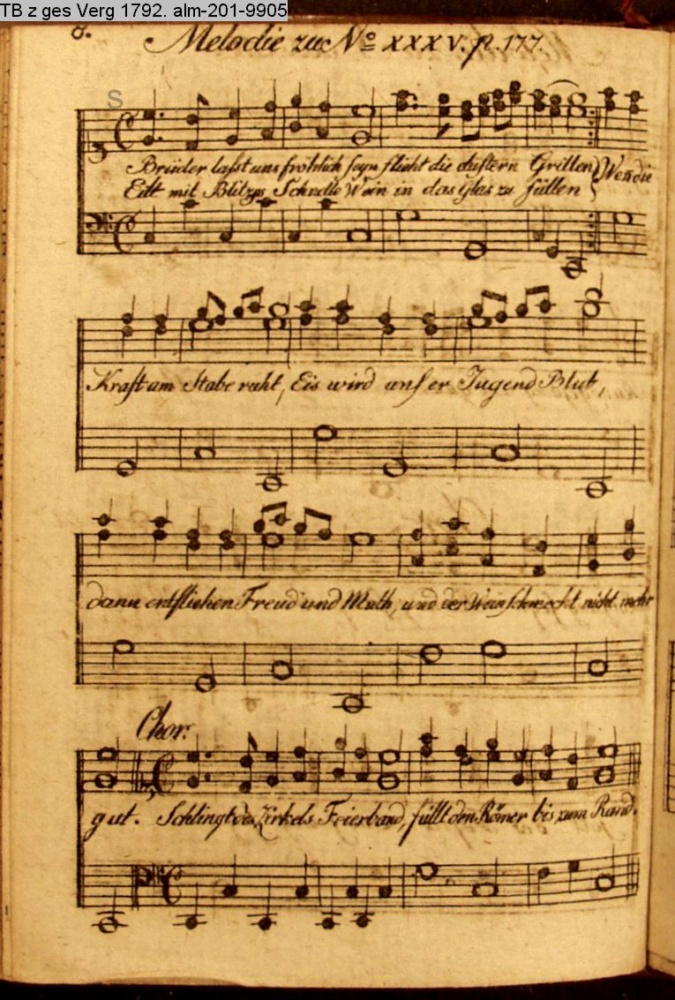 TB z ges Verg 1792. alm-201-9905
8.
Melodie zu No XXXV. p. 177.
S
Brüder lasst uns fröhlich seyn flieht die düstern Grillen Wenn die
Eilt mit Blitzes Schnelle Wein in das Glas zu füllen
Kraft am Stabe ruht, Eis wird unser Jugend Blut,
dann entfliehen Freud und Muth, und der Wein schmeckt nicht mehr
Chor.
gut. Schlingt des Zirkels Feierband, füllt den Römer bis zum Rand.